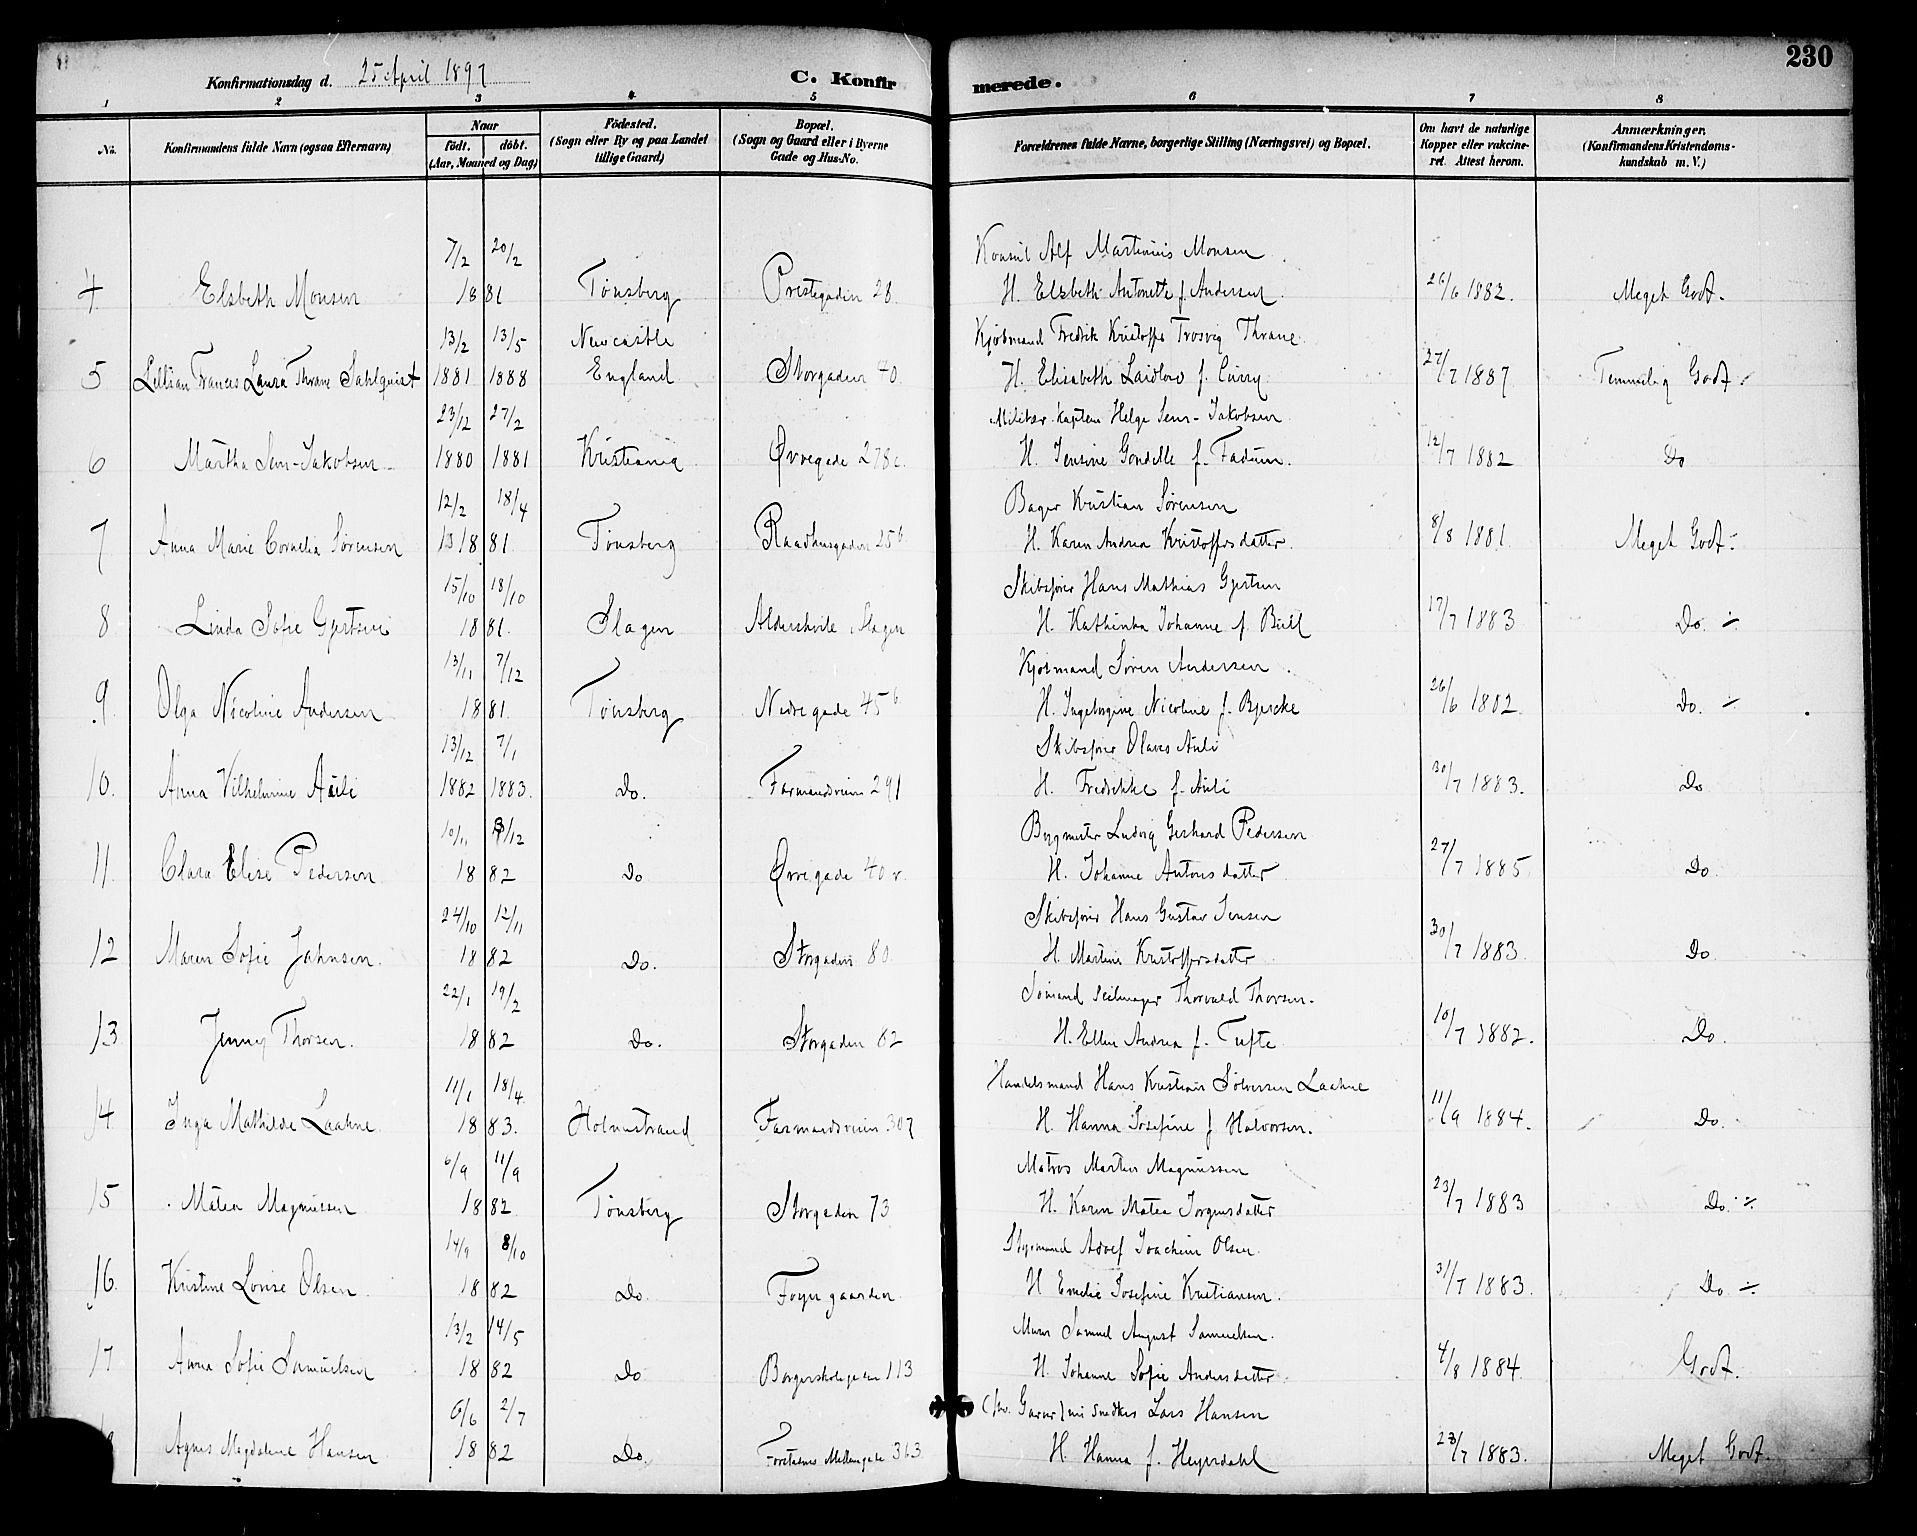 230
Konfirmationsdag d. 25 April 1897
C. Konfirmerede.
1 2 3 4 5 6 7 8
No.
Konfirmandens fulde Navn (ogsaa Efternavn)
Naar
födt. döbt.
(Aar, Maaned og Dag)
Födested.
(Sogn eller By og paa Landet
tillige Gaard)
Bopæl.
(Sogn og Gaard eller i Byerne
Gade og Hus-No.
Forældrenes fulde Navne, borgerlige Stilling (Næringsvei) og Bopæl.
Om havt de naturlige
Kopper eller vakcine-
ret. Attest herom.
Anmærkninger.
(Konfirmandens Kristendoms-
kundskab m. V.)
7/2 20/2 Konsul Alf Martinius Monsen
4 Elsbeth Monsen 1881 Tønsberg Prestegaden 28. H. Elsbeth Antonette f. Andersen 26/6 1882. Meget Godt.
13/2 13/5 Newcastle Kjøbmand Fredrik Kristoffer Trosvig Thrane
5 Lillian Frances Laura Thrane Sahlquist 1881 1888 England Storgaden 70 H. Elisabeth Laidlow f. Curry 27/7 1887 Temmelig Godt
23/12 27/2 Militær Kaptein Helge Sem-Jakobsen
6 Martha Sem-Jakobsen 1880 1881 Kristiania Øvregade 278c H. Jensine Gondelle f. Fadum. 12/7 1882 Do
12/2 18/4 Bager Kristian Sørensen
7 Anna Marie Cornelia Sørensen 13 1881 Tønsberg Raadhusgaden 25b H. Karen Andrea Kristoffersdatter 8/8 1881 Meget Godt
15/10 18/10 Skibsfører Hans Mathias Gjertsen
8 Linda Sofie Gjertsen 1881. Slagen Aldershvile, Slagen H. Kathinka Johanne f. Bull 17/7 1883 Do. ÷
13/11 7/12 Kjøbmand Søren Andersen
9. Olga Nicoline Andersen 1881 Tønsberg Nedregade 45b H. Ingeborgine Nicoline f. Bjercke 26/6 1882 Do. ÷
13/12 7/1 Skibsfører Olaves Auli
10. Anna Vilhelmine Auli 1882 1883. Do. Farmandsveien 291 H. Fredrikke f. Auli 30/7 1883. Do
10/11 /12 Bygmester Ludvig Gerhard Pedersen
11. Clara Elise Pedersen 1882 Do Øvregade 40 H. Johanne Antonsdatter 27/7 1885 Do.
24/10 12/11 Skibsfører Hans Gustav Jensen
12 Maren Sofie Jahnsen. 1882 Do. Storgaden 80 H. Martine Kristoffersdatter 30/7 1883. Do
22/1 19/2 Sømand Seilmager Thorvald Thorsen.
13 Jenny Thorsen. 1882 Do. Storgaden 62 H. Ellen Andrea f. Tufte 10/7 1882. Do.
11/1 18/4 Handelsmand Hans Kristian Sølversen Laahne
14. Inga Mathilde Laahne 1883. Holmestrand Farmandsveien 307 H. Hanna Josefine f Halvorsen. 11/9 1884. Do.
6/9 11/9 Matros Martin Magnussen
15 Matea Magnussen 1882 Tønsberg Storgaden 73 H. Karen Matea Jørgensdatter 23/7 1883 Do ÷
14/9 8/10 Styrmand Adolf Joachim Olsen.
16. Kristine Lovise Olsen. 1882 Do Foyn gaarden H Emelie Josefine Kristiansen. 31/7 1883. Do ÷
13/2 14/5 Murer Samuel August Samuelsen.
17 Anna Sofie Samuelsen 1882 Do Borgerskolegaden 113 H. Johanne Sofie Andersdatter 4/8 1884. Godt.
6/6 2/7 Garver Snedker Lars Hansen
Agnes Magdalene Hansen 1882 Do. Mellemgade 363 H. Hanna f. Heyerdahl 23/7 1883. Meget Godt.